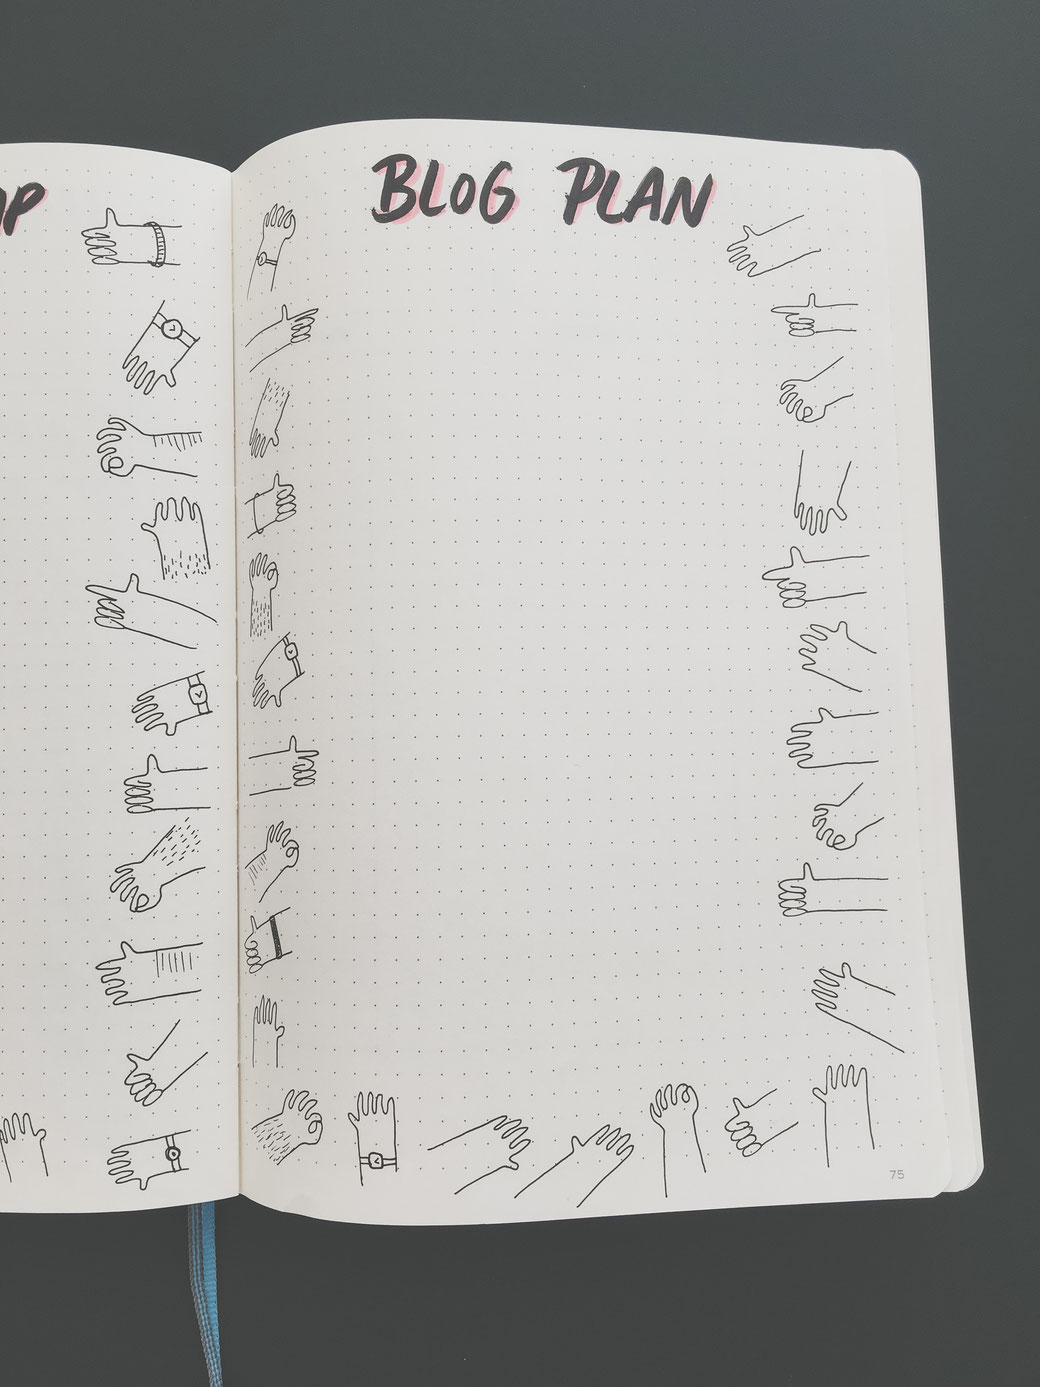 BLOG PLAN
75